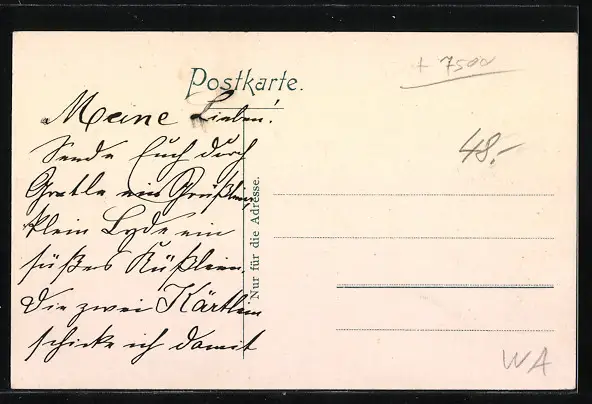 Postkarte.
+ 7500
Meine Lieben!
Sende Euch durch
Gretle ein Grüßlein
klein Lyde ein
süßes Küßlein.
Die zwei Kärtlein
schicke ich damit
Nur für die Adresse.
48.-
WA